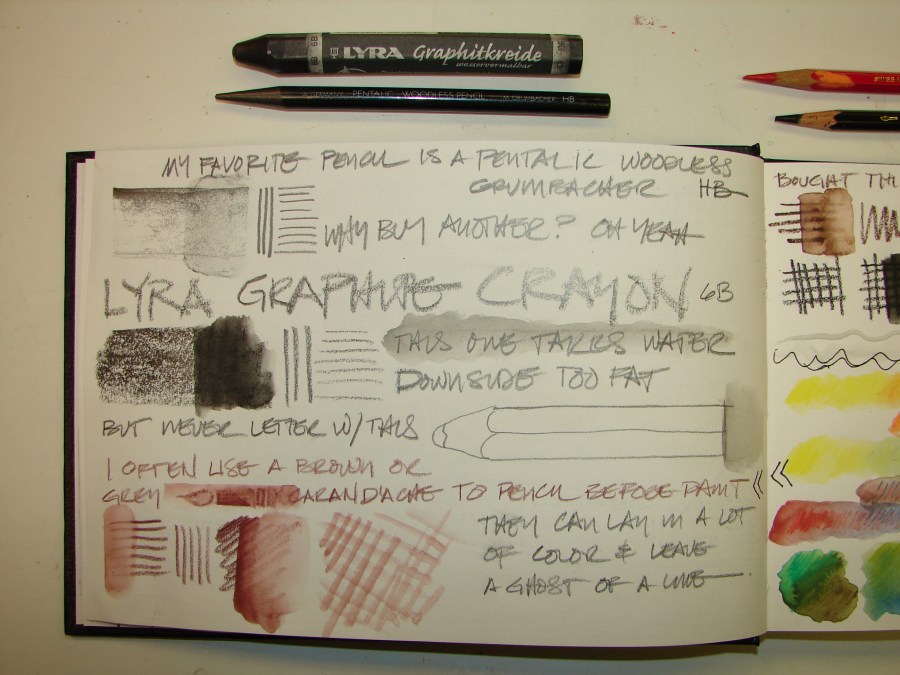 6B LYRA Graphitkreide
wasservermalbar
GERMANY PENTALIC WOODLESS PENCIL M. GRUMBACHER HB
MY FAVORITE PENCIL IS A PENTALIC WOODLESS
GRUMBACHER HB
WHY BUY ANOTHER? OH YEAH
LYRA GRAPHITE CRAYON 6B
THIS ONE TAKES WATER
DOWNSIDE TOO FAT
BUT NEVER LETTER W/THIS
I OFTEN USE A BROWN OR
GREY CARANDACHE TO PENCIL BEFORE PAINT
THEY CAN LAY IN A LOT
OF COLOR & LEAVE
A GHOST OF A LINE
BOUGHT THI